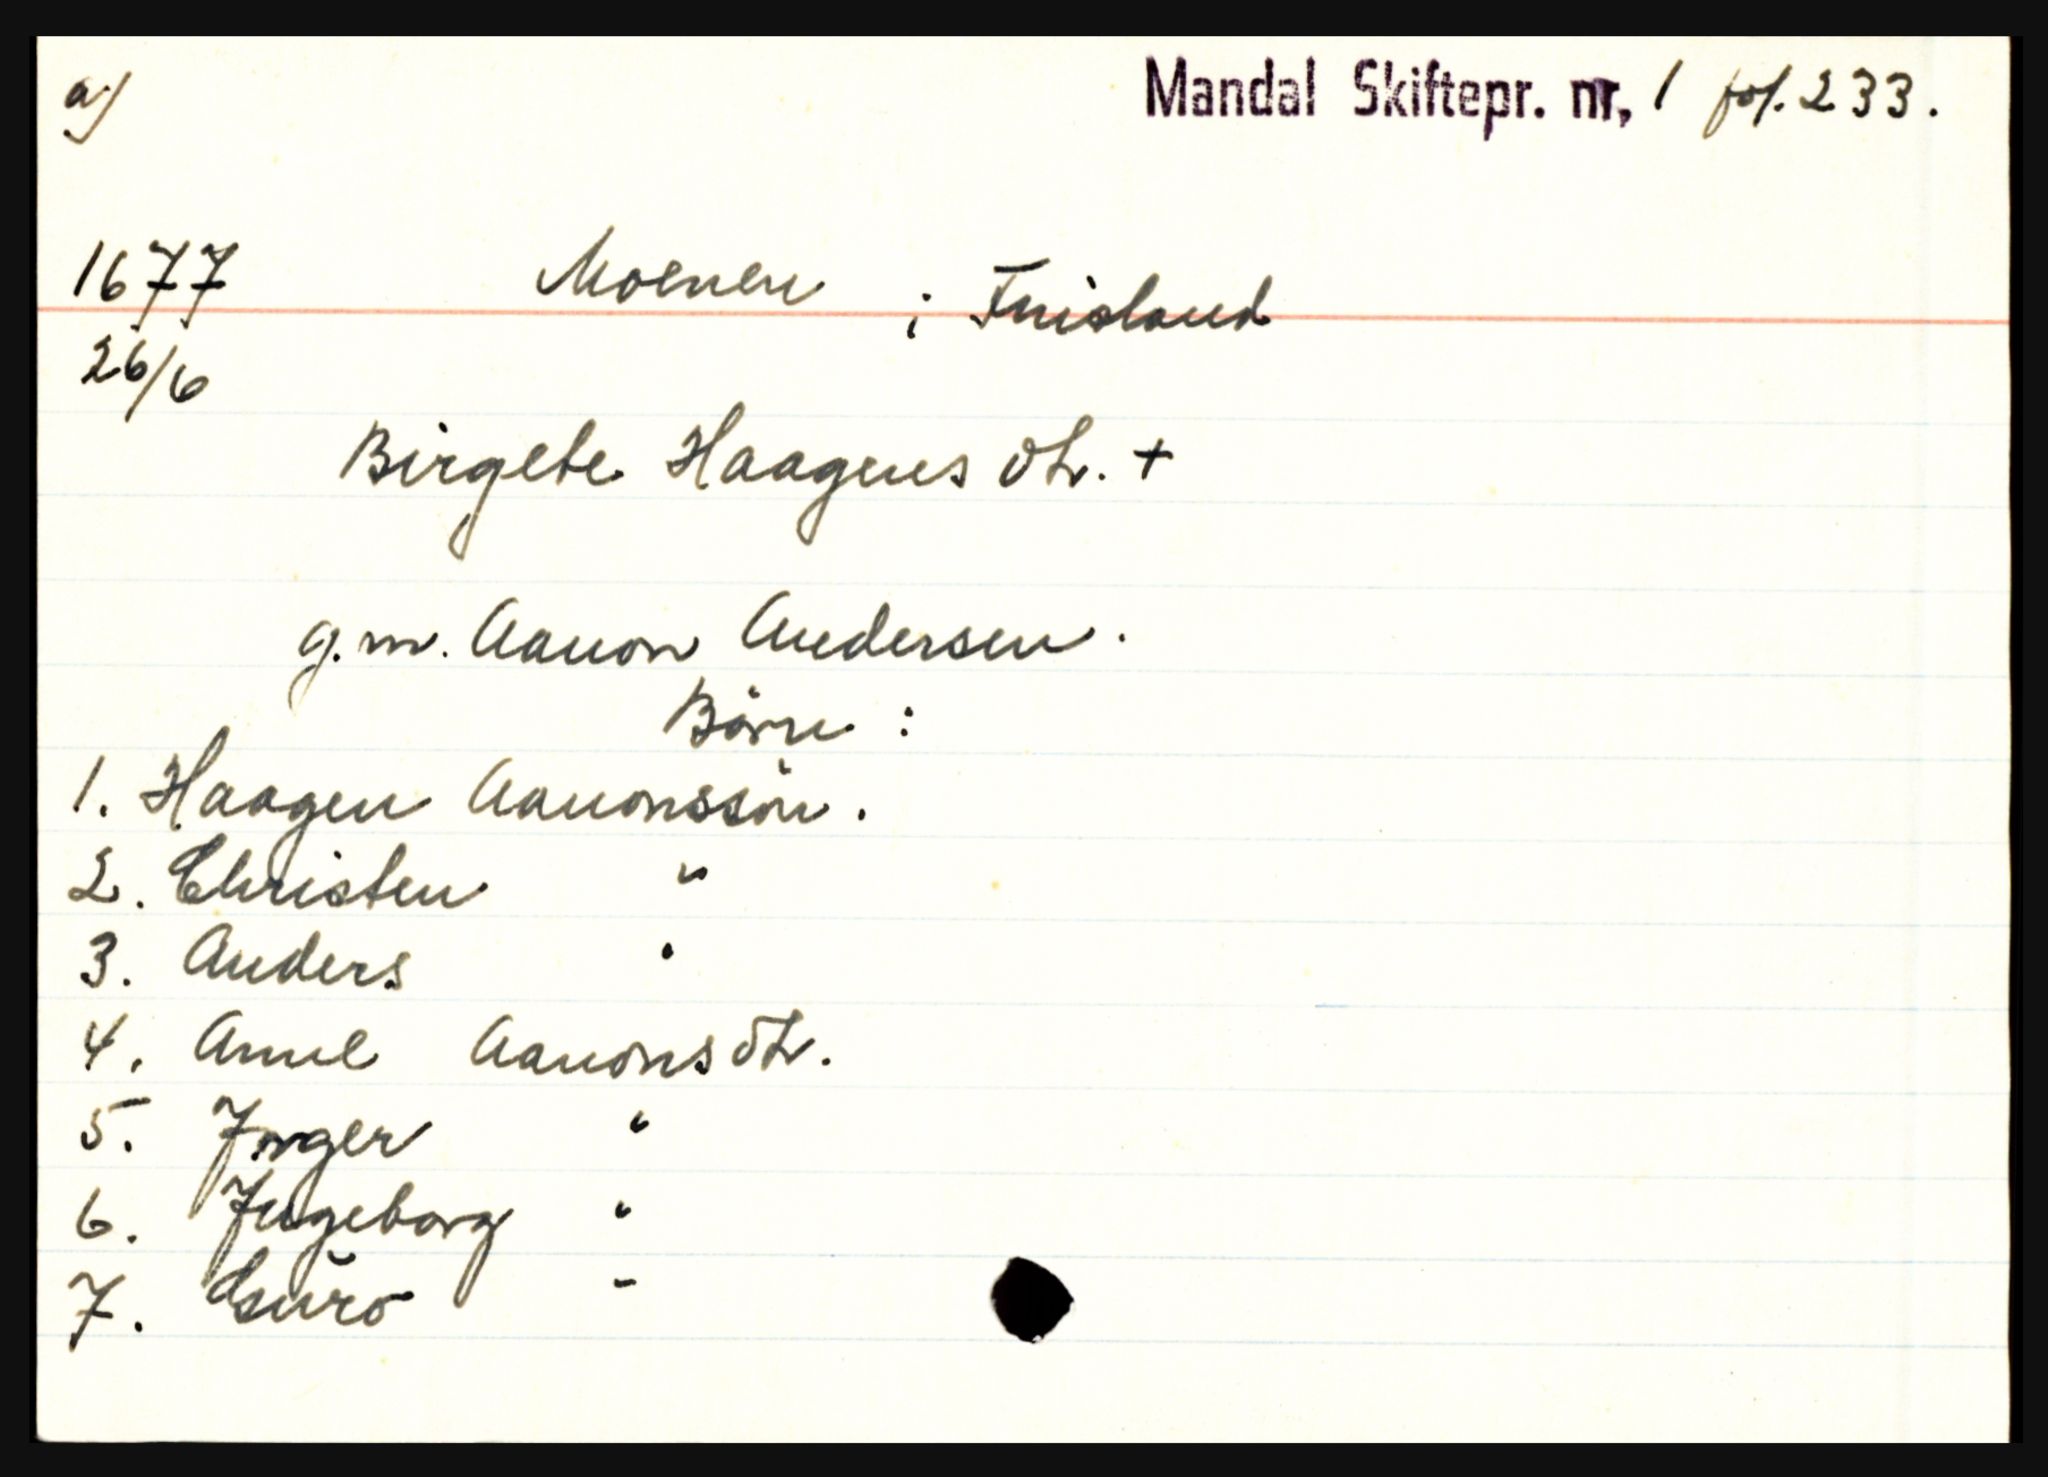 a) Mandal Skiftepr. nr. 1 fol. 233.
1677 Moenen i Finsland
26/6
Birgete Haagens dtr. +
g.m. Aanon Andersen.
Børn :
1. Haagen Aanonssøn.
2. Christen "
3. Anders "
4. Anne Aanonsdtr.
5. Inger "
6. Ingeborg "
7. Guro "